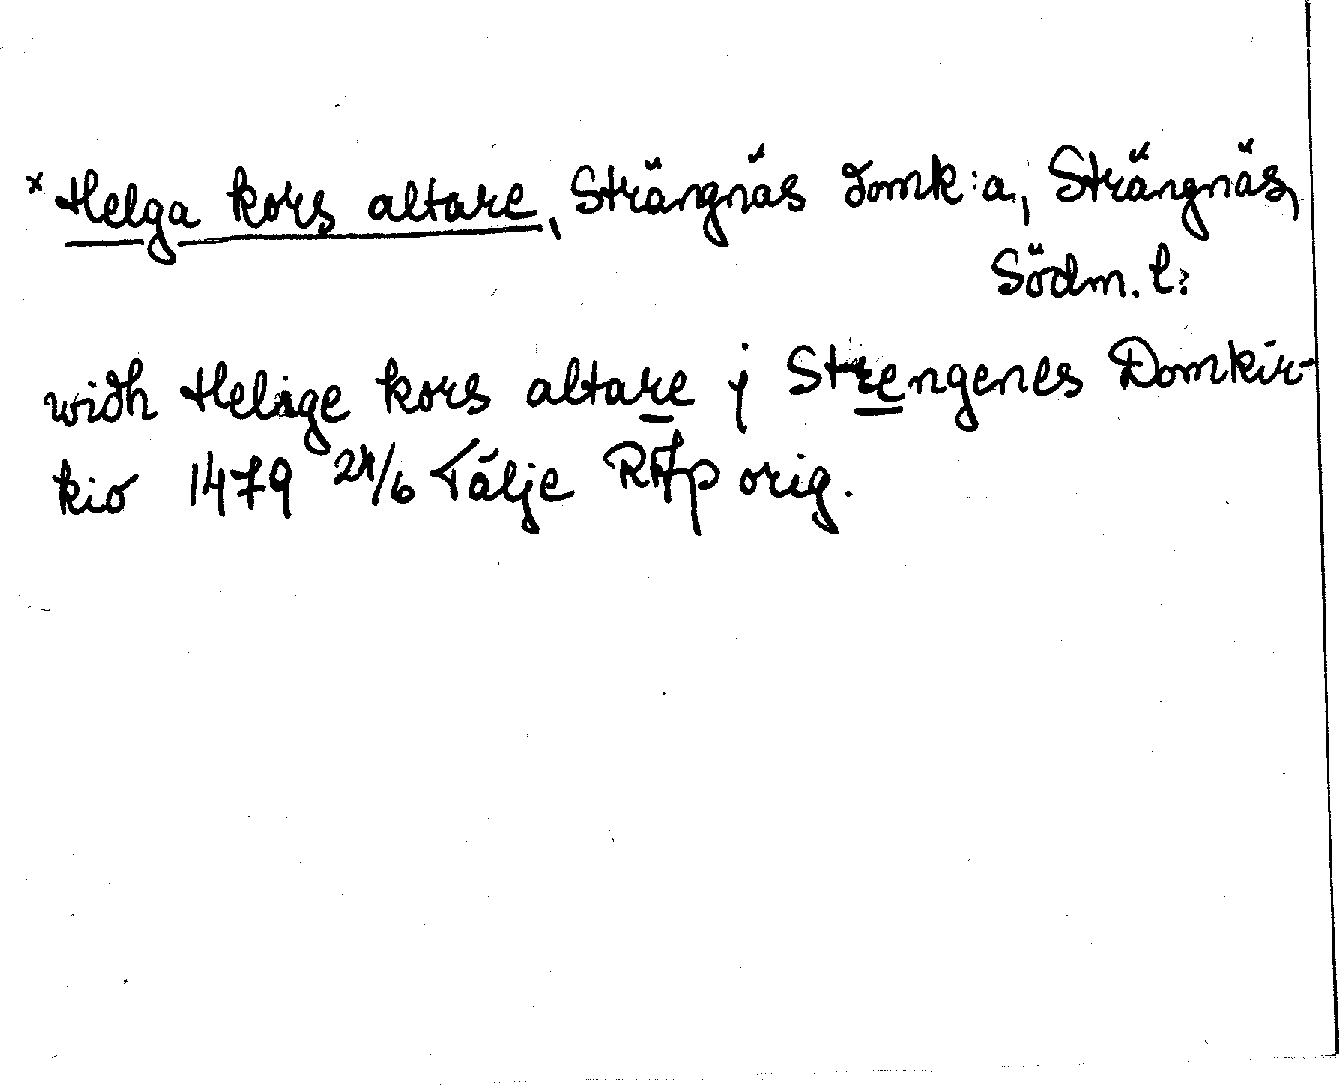 × Helga kors altare, Strängnäs domk:a, Strängnäs,
Södm. l:
widh Helige kors altare j Strengenes Domkir-
kio 1479 24/6 Tälje RAp orig.